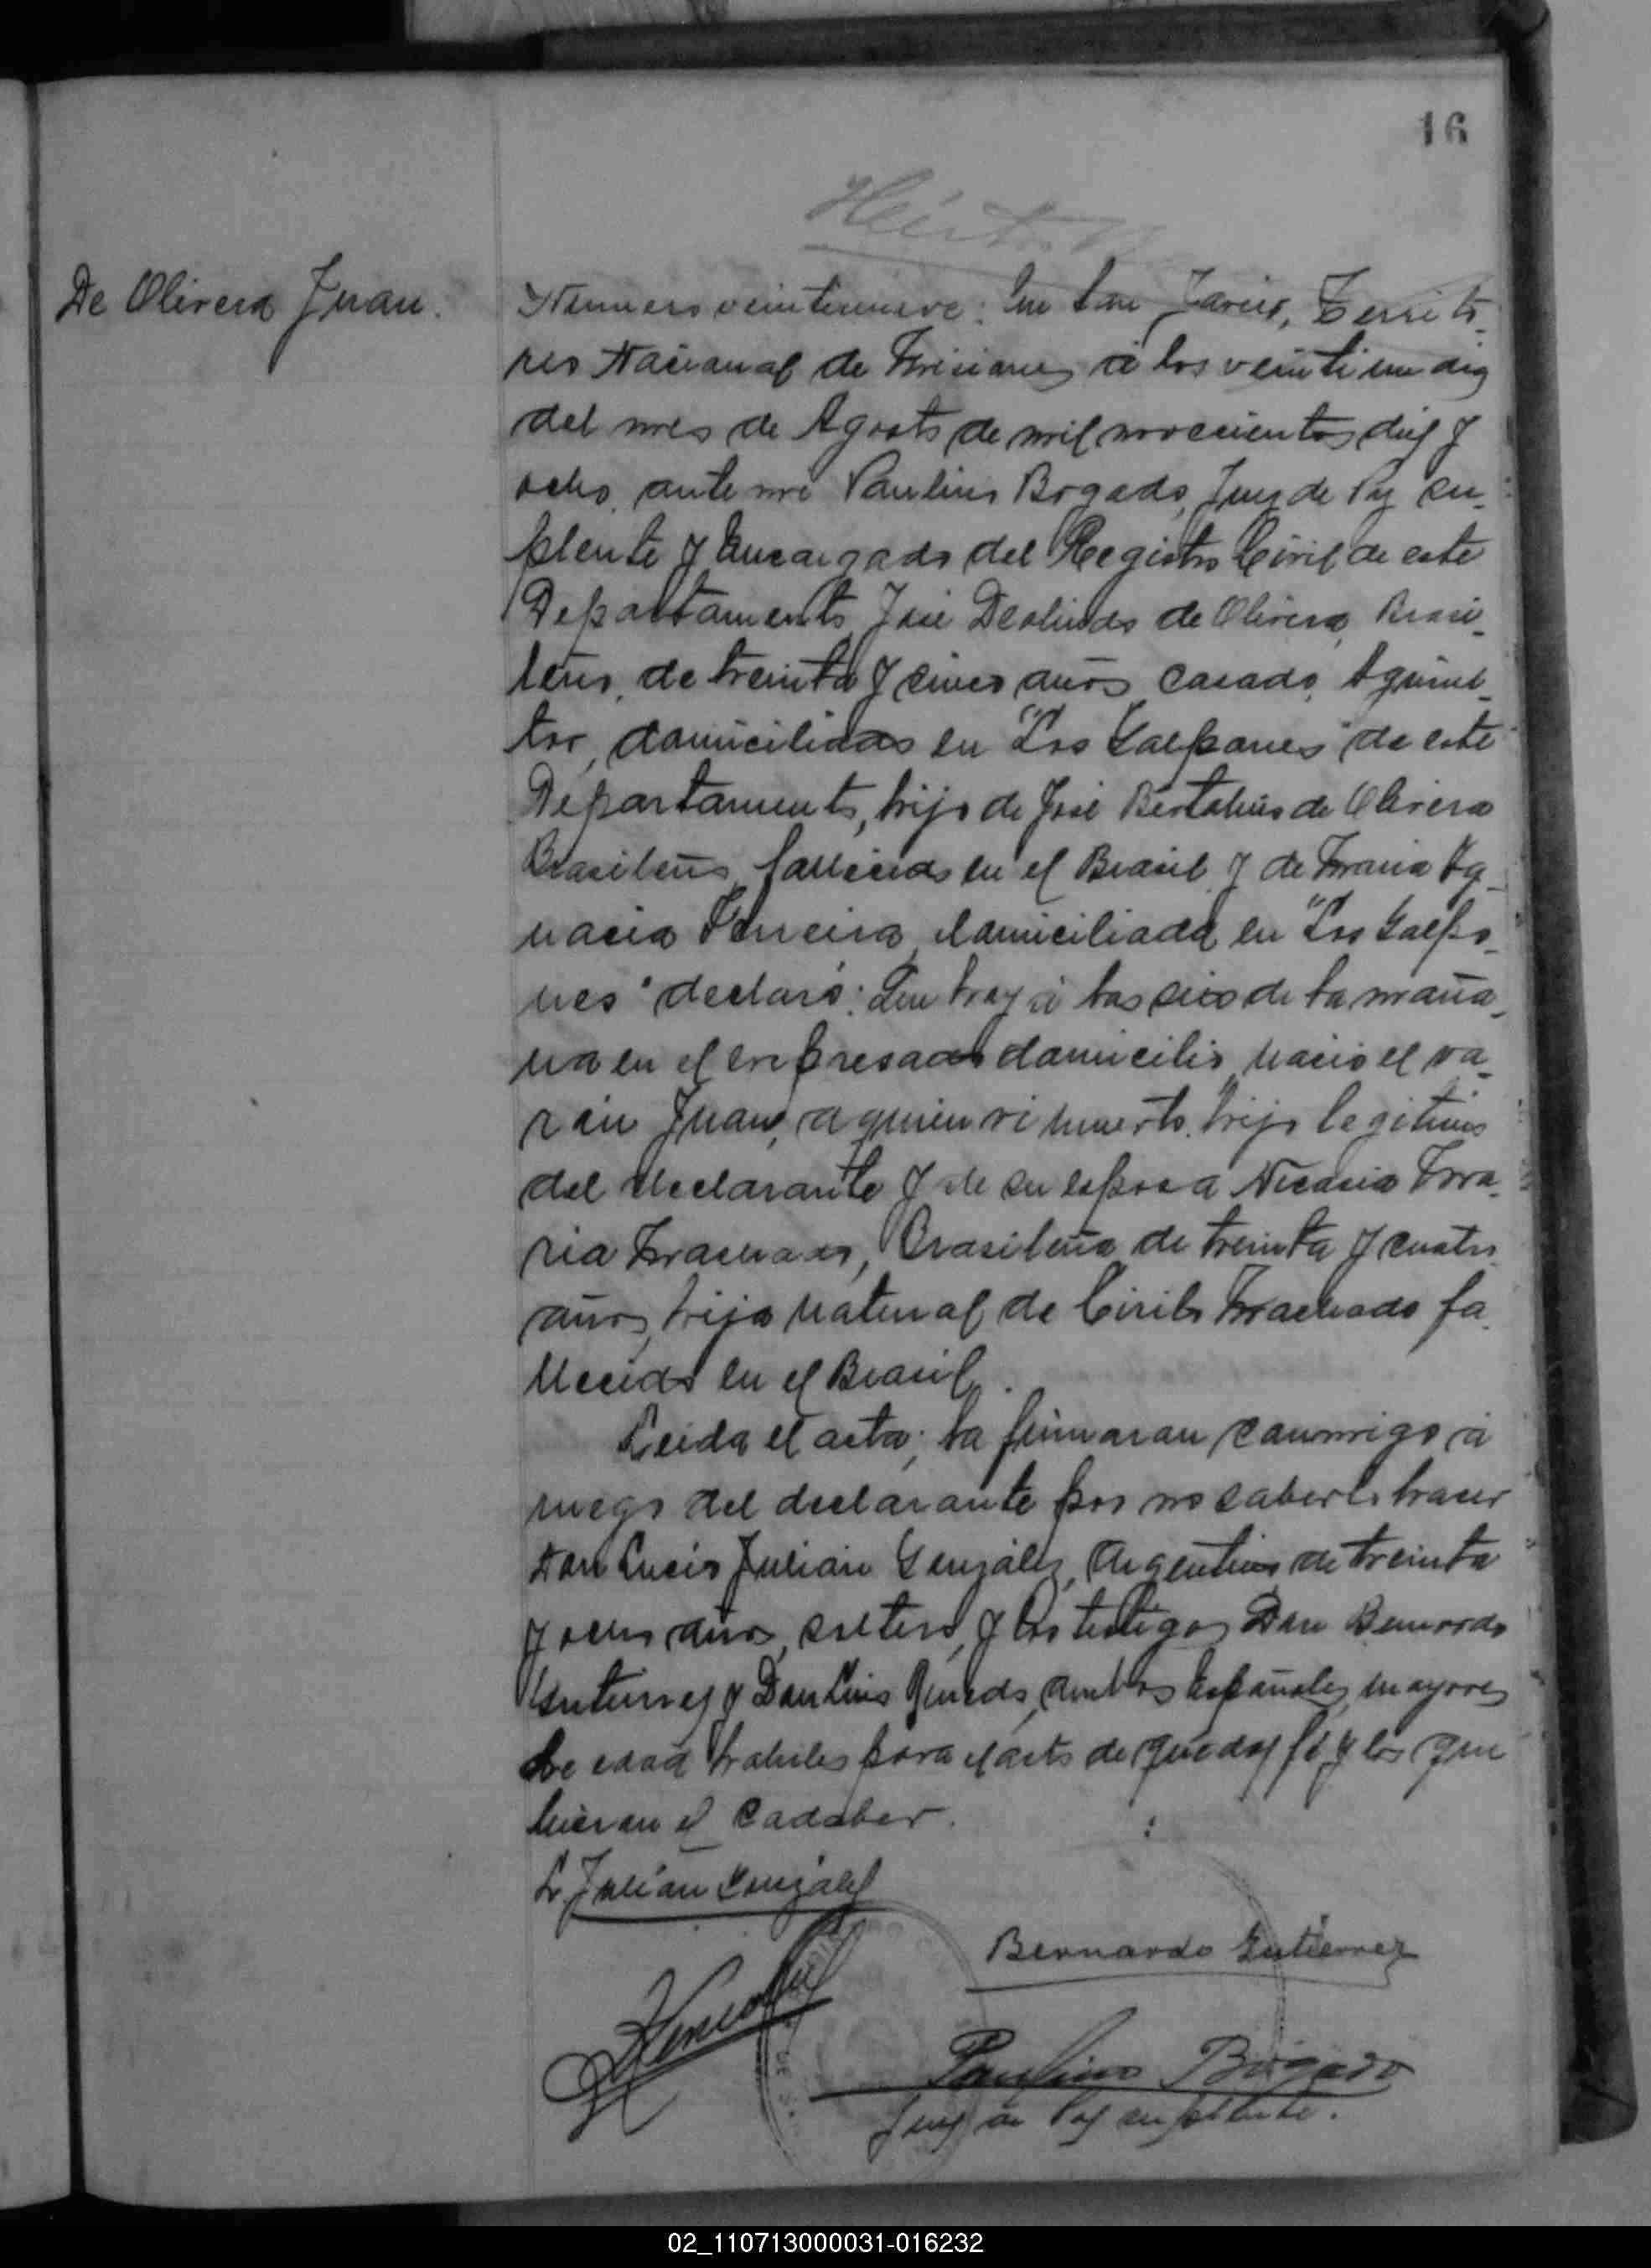 16
De Olivera Juan.
Numero veintinueve: En San Javier, Territo-
rio Nacional de Misiones á los veintiun dias
del mes de Agosto de mil novecientos diez y
ocho, ante mi Paulino Bogado, Juez de Paz su-
plente y Encargado del Registro Civil de este
Departamento, José Deolindo de Olivera, Brasi-
leño, de treinta y cinco años, casado, Agricul-
tor, domiciliado en "Los Galpones" de este
Departamento, hijo de José de Olivera
Brasileño, fallecido en el Brasil y de Maria Ig-
nacia Ferreira, domiciliada en "Los Galpo-
nes" declaró: Que hoy á las seis de la maña-
na en el expresado domicilio, nació el va-
rón Juan, a quien vi muerto, hijo legitimo
del declarante y de su esposa Nicacia Ma-
ria Machado, Brasileña de treinta y cuatro
años, hija natural de Cirilo Machado fa-
llecido en el Brasil.
Leida el acta, la firmaran conmigo á
ruego del declarante por no saberlo hacer
Don Lucio Julián González, Argentino de treinta
y ocho años, soltero, y los testigos Don Bernardo
Gutierrez y Don Luis, ambos Españoles, mayores
de edad habiles para el acto de que doy fé y los que
vieron el cadaber.
L. Julián González
Bernardo Gutierrez
Paulino Bogado
Juez de Paz suplente.
02_110713000031-016232